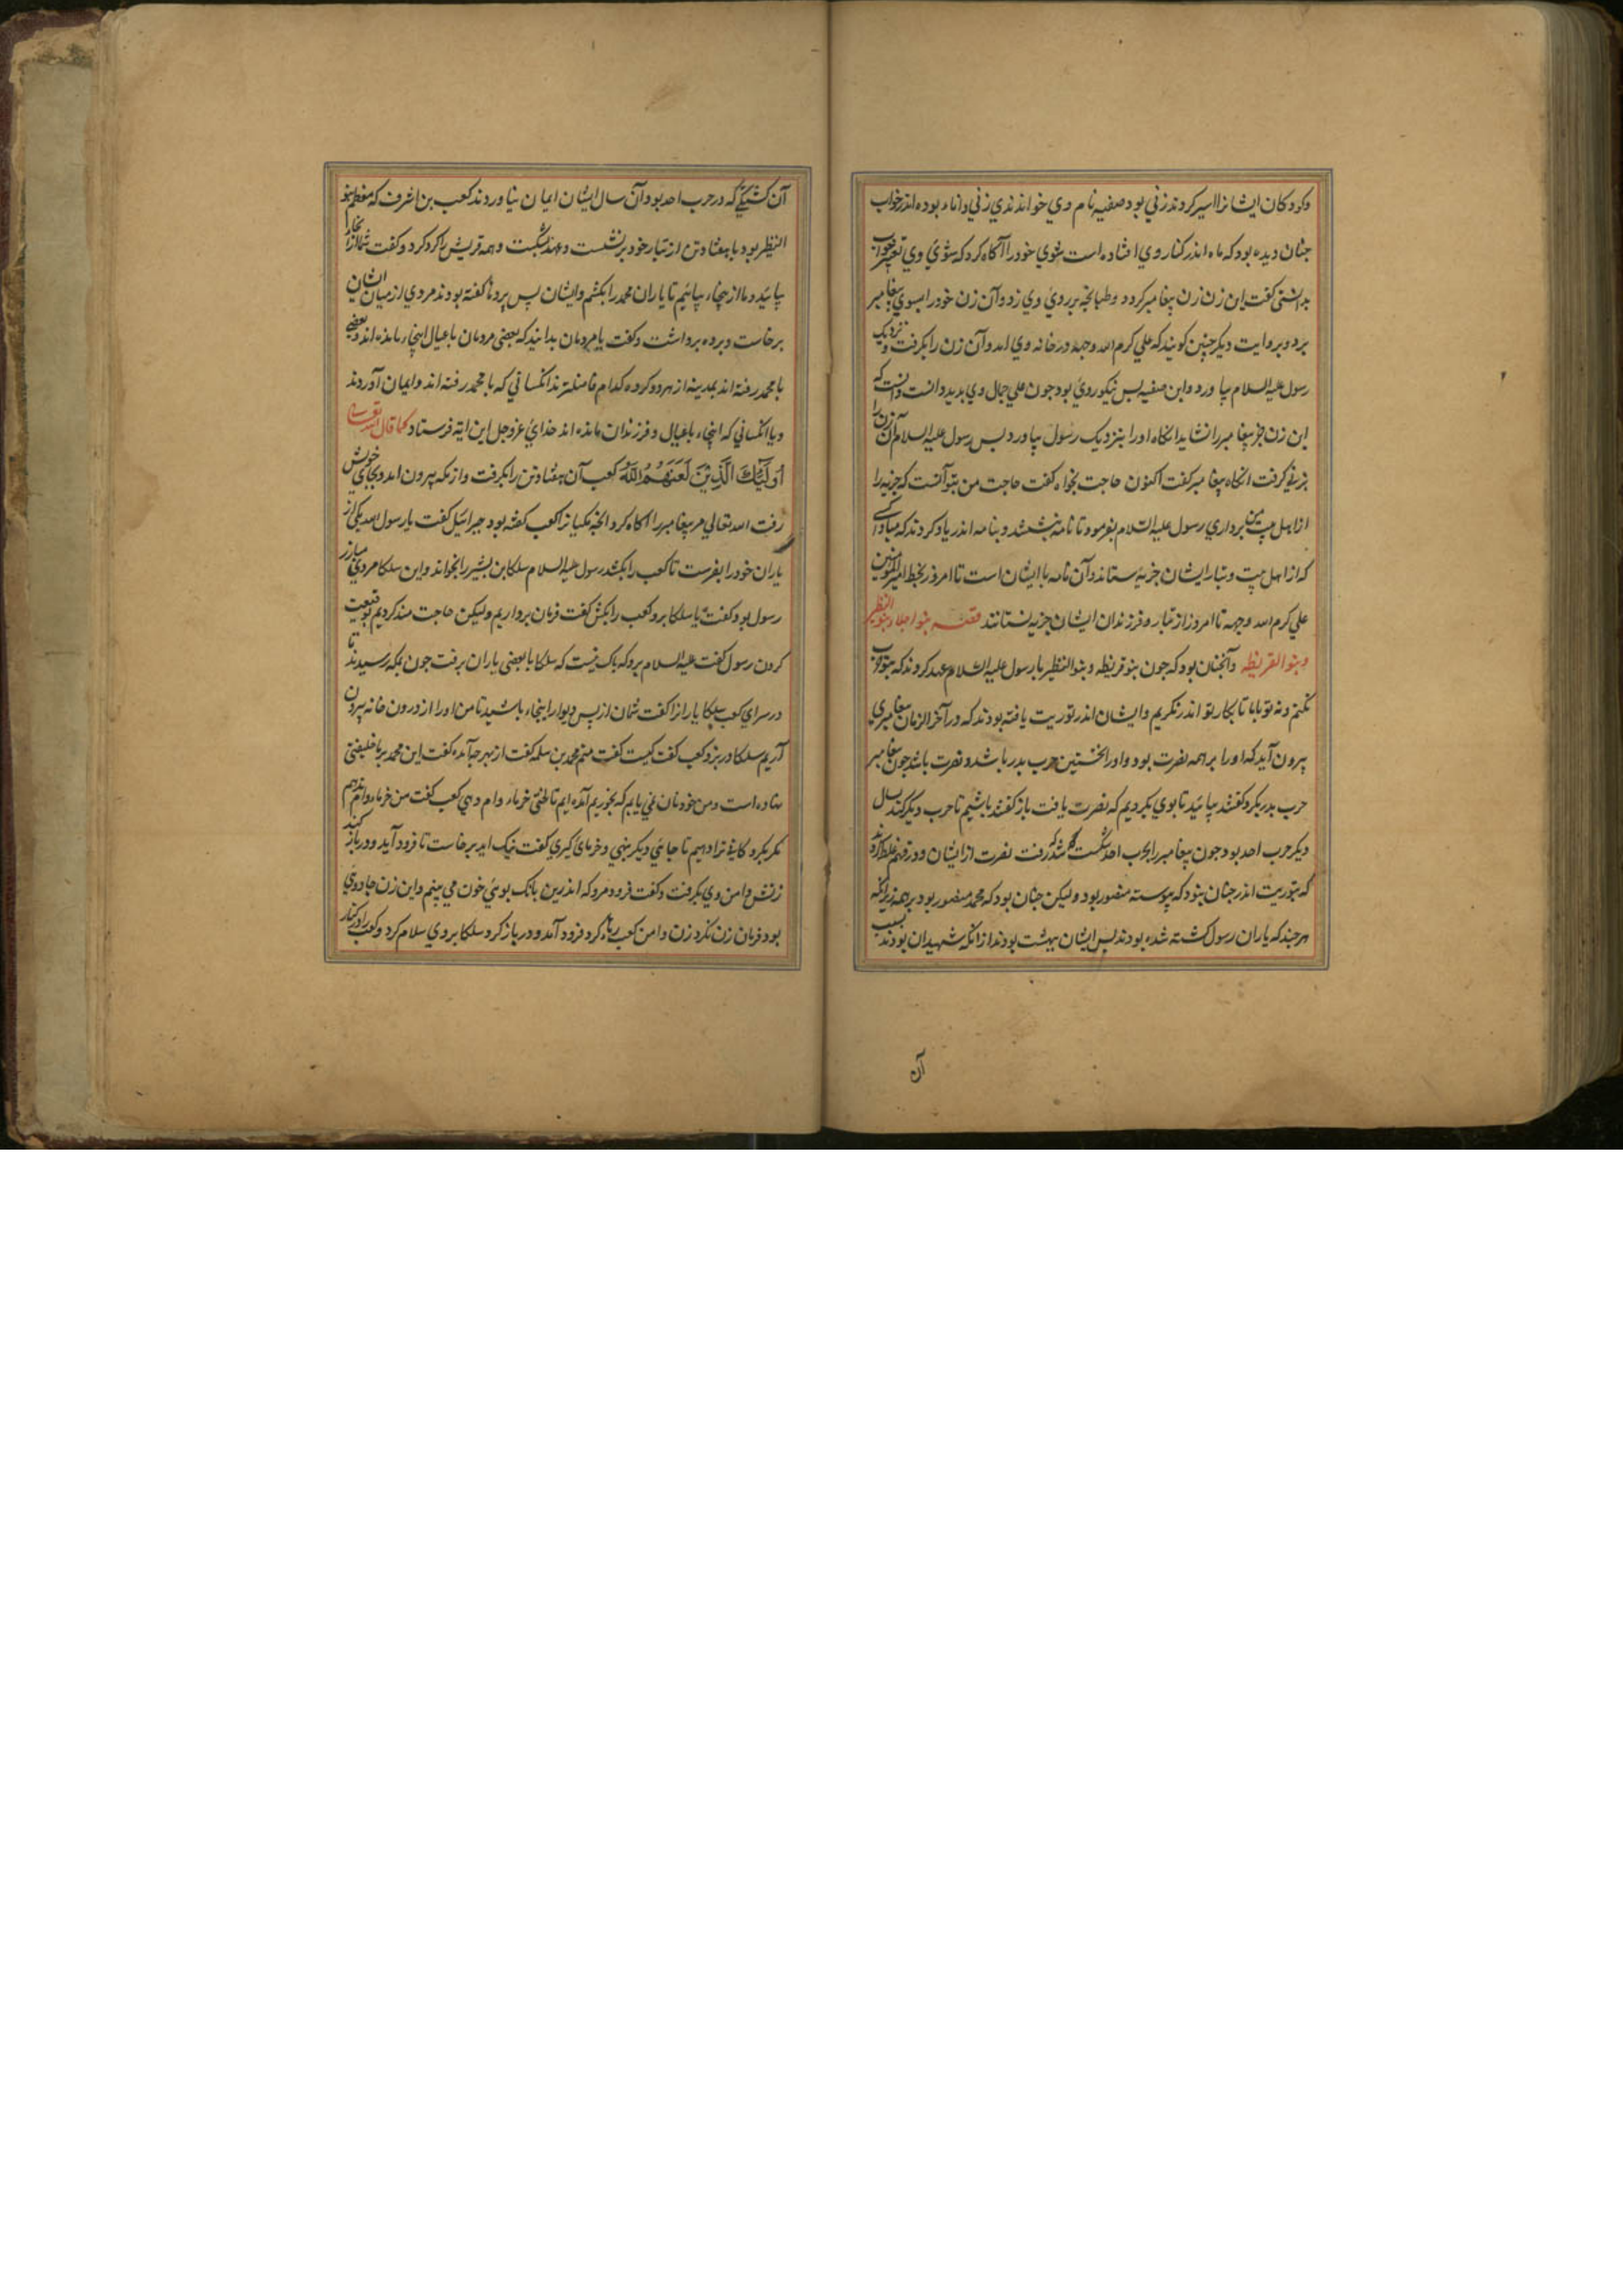 وکودکان ایشانرا اسیر کردند زنی بود صفیه نام وی خواندندی زنی دانا بوده اندر خواب
جنان دیده بود که ماه اندر کنار وی افتاده است شوی خود را آگاه کرد که شوی وی تعبیر خواب
بدانستی کفت این زن زن پیغامبر کردد و طبانجه بر روی وی زد و آن زن خود را بسوی پیغامبر
برد و بروایت دیکر جنین کویند که علی کرم الله وجهه در خانه وی امد و آن زن را بکرفت و نزدیک
رسول علیه السلام بیاورد و این صفیه بس نیکو روی بود جون علی جمال وی بدید دانست که
این زن جز پیغامبر را نشاید انکاه او را بنزدیک رسول بیاورد بس رسول علیه السلام آن زن را
بزنی کرفت انکاه پیغامبر کفت اکنون حاجت بخواه کفت حاجت من بتو آنست که جزیه را
از اهل بیت من برداری رسول علیه السلام بفرمود تا نامه بنبشتند و بنامه اندر یاد کردند که مبادا کسی
که از اهل بیت و تبار ایشان جزیه ستاند و آن نامه با ایشان است تا امروز بخط امیر المؤمنین
علی کرم الله وجهه تا امروز از تبار و فرزندان ایشان جزیه نستانند قصه بنو اجلاء بنو النظیر
و بنو القریظه و آنجنان بود که جون بنو قریظه و بنو النظیر با رسول علیه السلام عهد کردند که بتو حرب
نکنیم و نه تو با ما تا بکار تو اندر نکریم و ایشان اندر توریت یافته بودند که در آخر الزمان پیغامبری
بیرون آید که او را بر همه نصرت بود و او را نخستین حرب بدر باشد و نصرت باشد جون پیغامبر
حرب بدر بکرد کفتند بیائید تا بوی بکرویم که نصرت یافت باز کفتند باشیم تا حرب دیکر کند سال
دیکر حرب احد بود جون پیغامبر را بحرب احد شکست شد رفت نصرت از ایشان و در فهم غلط کردند
که بتوریت اندر جنان بنود که پیوسته منصور بود ولیکن جنان بود که محمد منصور بود بر همه زیرانکه
هر جند که یاران رسول کشته شده بودند بس ایشان ببهشت بودند از انکه شهیدان بودند بسبب
آن
آن کشتکی که در حرب احد بود و آن سال ایشان ایمان نیاوردند کعب بن اشرف که معظم بنو
النظیر بود با هفتاد تن از تبار خود برنشست و عهد بشکست و همه قریش را کرد کرد و کفت شما از انجا
بیائید و ما از ینجا بیائیم تا یاران محمد را بکشیم و ایشان پس پرده کفته بودند مردی از میان ایشان
برخاست و پرده برداشت و کفت یا مردمان بدانید که بعضی مردمان با عیال اینجا مانده اند و بعضی
با محمد رفته اند بمدینه از هر دو کروه کدام فاضلترند انکسانی که با محمد رفته اند و ایمان آوردند
و یا انکسانی که اینجا با عیال و فرزندان مانده اند خدای عزوجل این ایة فرستاد کما قال الله تعالی
أُولَئِكَ الَّذِينَ لَعَنَهُمُ اللَّهُ کعب آن هفتاد تن را بکرفت و از مکه بیرون امد و بجای خویش
رفت الله تعالی مر پیغامبر را آکاه کرد انجه مکیانرا کعب کفته بود جبرائیل کفت یا رسول الله یکی از
یاران خود را بفرست تا کعب را بکشد رسول علیه السلام سلکا بن بشیر را بخواند و این سلکا مردی مبارز
رسول بود کفت یا سلکا برو کعب را بکش کفت فرمان برداریم ولیکن حاجت مند کردیم بوقیعت
کردن رسول کفت علیه السلام برو که باک نیست که سلکا با بعضی یاران برفت جون بمکه رسیدند تا
در سرای کعب سلکا یارانرا کفت شمان از پس دیوار اینجا باشید تا من او را از درون خانه بیرون
آریم سلکا در بزد کعب کفت کیست کفت منم محمد بن سلمه کفت از بهر جه آمده کفت این محمد بر ما خلیفتی
نهاده است و من خود نان نمی یابم که بخوریم آمده ایم تا لختی خرماء وام دهی کعب کفت من خرماء وام ندهم
مکر بکرو کابنة ترا دهیم تا جائی دیکر بنهی و خرمای کیری کفت نیک اید برخاست تا فرود آید و در باز کند
زنش دامن وی بکرفت و کفت فرود مرو که اندرین بانک بوئی خون می بینم و این زن جادوی
بود فرمان زن نکرد زن دامن کعب رها کرد فرود آمد و در باز کرد سلکا بر وی سلام کرد و کعب را در کنار